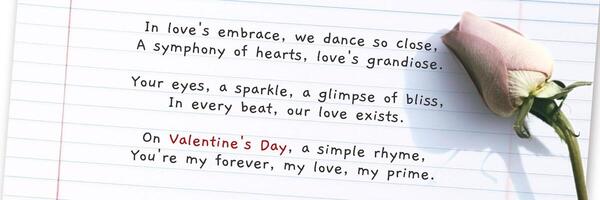 In love's embrace, we dance so close,
A symphony of hearts, love's grandiose.
Your eyes, a sparkle, a glimpse of bliss,
In every beat, our love exists.
On Valentine's Day, a simple rhyme,
You're my forever, my love, my prime.